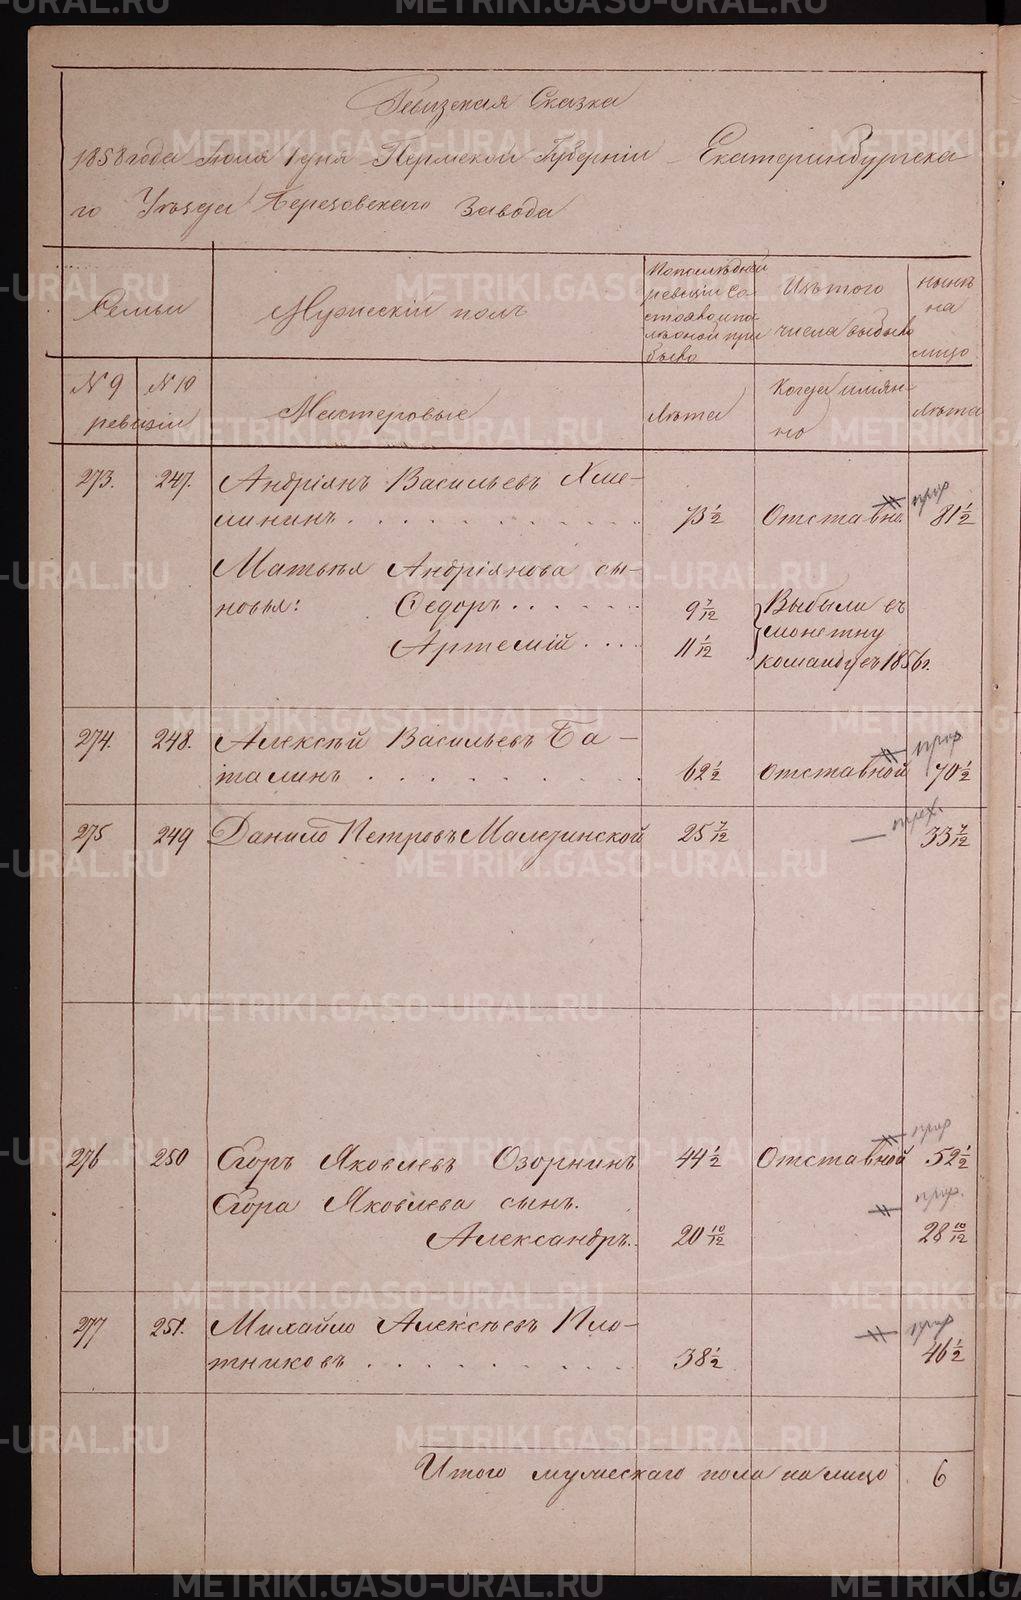 Ревизская Сказка
1858 года Июля 1 дня Пермской Губерніи Екатеринбургска
го Уѣзда Березовскаго Завода
Семьи
Мужескій полъ
По последней
ревизіи со
стояло и по
слѣ оной при
было
Изъ того
числа выбыло
Нынѣ
на
лицо
№ 9 № 10
ревизіи
Мастеровые
Лѣта
Когда имян
но
Лѣта
273. 247. Андріянъ Васильевъ Хме-
лининъ 73 1/2 Отставно. 81 1/2
Матвѣя Андріянова сы-
новья: Федоръ 9 7/12 Выбыли въ
монетну
Артемій 11 1/12
команду съ 1856 г.
274. 248. Алексѣй Васильевъ Ба-
талинъ 62 1/2 Отставной 70 1/2
275 249 Данило Петровъ Малезинской 25 7/12 33 7/12
276 250 Егоръ Яковлевъ Озорнинъ 44 1/2 Отставной 52 1/2
Егора Яковлева сынъ.
Александръ 20 10/12 28 10/12
277 251. Михайло Алексѣевъ Пло-
тниковъ 38 1/2 46 1/2
Итого мужескаго пола на лицо 6
METRIKI.GASO-URAL.RU